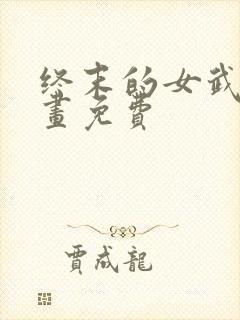 终末的女武
畫免費
賈成龍